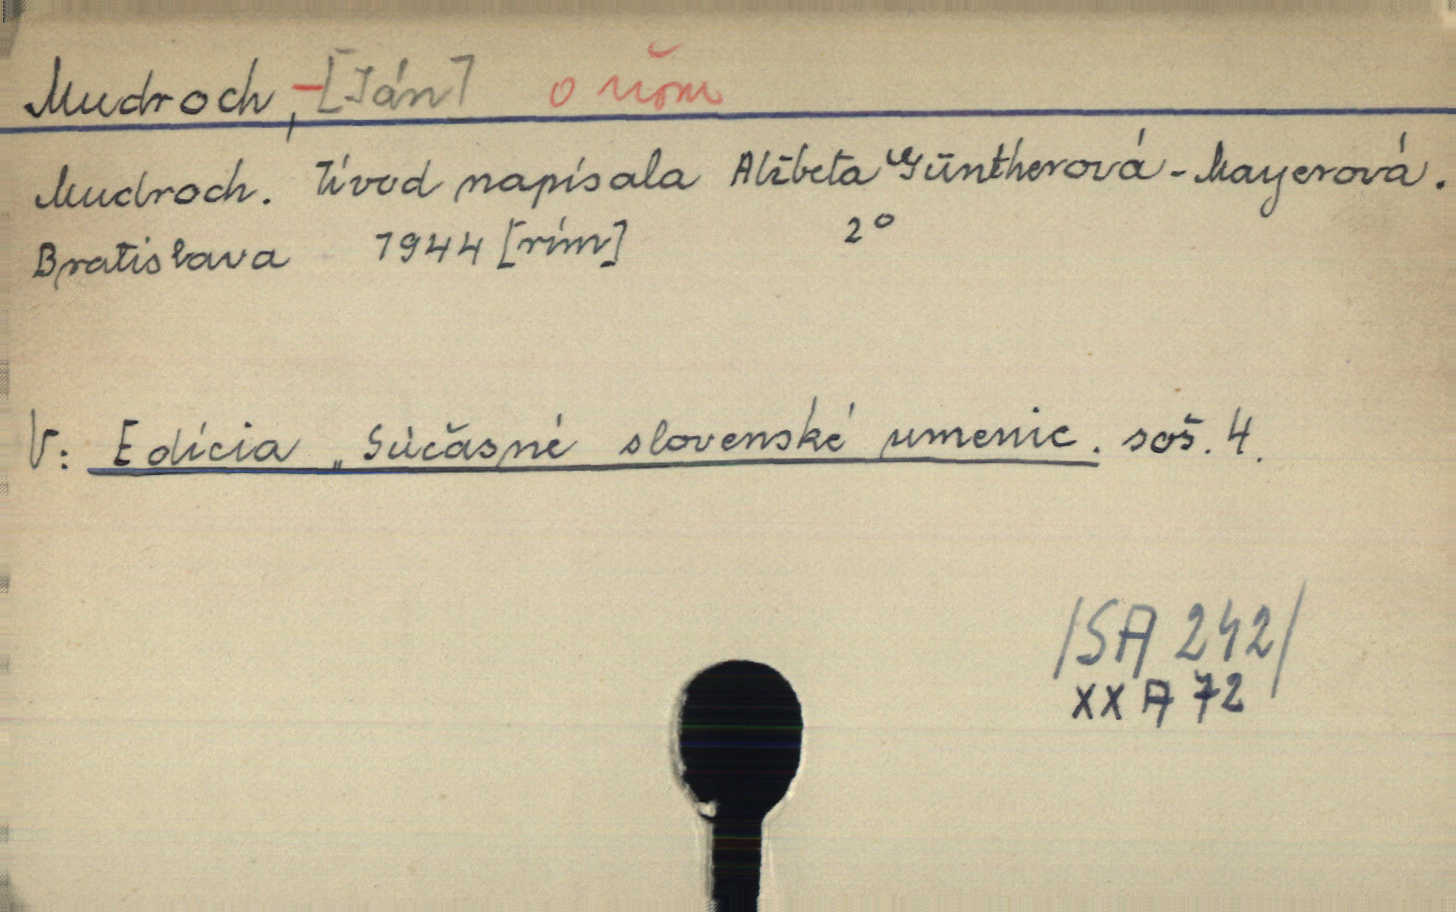 Mudroch, -[Ján] o ňom
Mudroch. Úvod napísala Alžbeta Güntherová-Mayerová.
Bratislava 1944 [rím] 2°
V: Edícia „Súčasné slovenské umenie. soš. 4.
/SA 242/
XX A 72